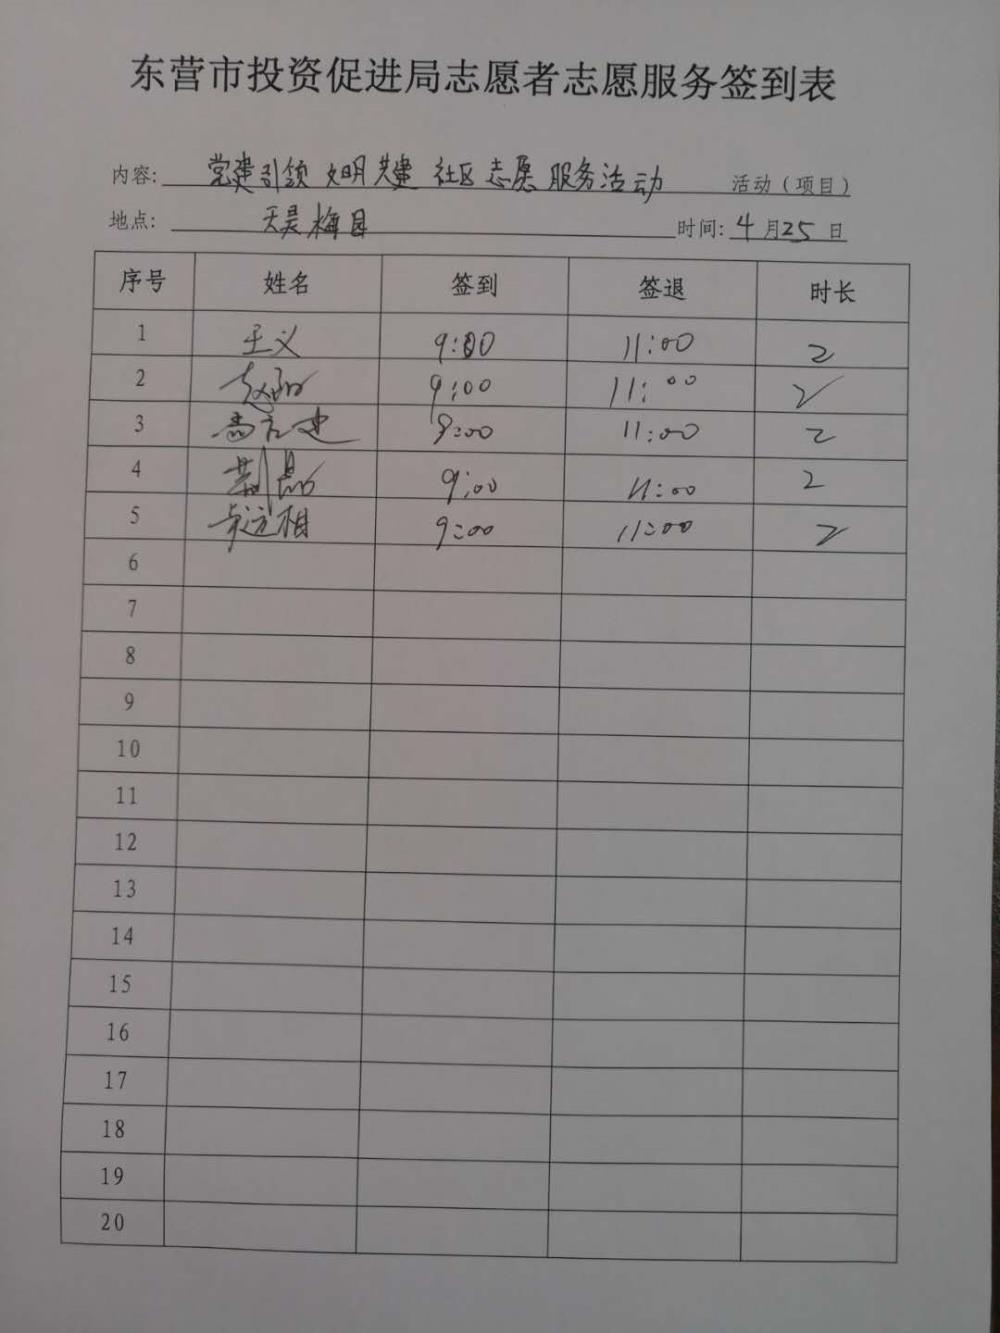 东营市投资促进局志愿者志愿服务签到表
内容: 党建引领 文明共建 社区志愿服务活动 活动（项目）
地点: 天昊梅园 时间: 4月25日
序号 姓名 签到 签退 时长
1 王义 9:00 11:00 2
2 赵 9:00 11:00 2
3 高 建 9:00 11:00 2
4 荆晶 9:00 11:00 2
5 远相 9:00 11:00 2
6
7
8
9
10
11
12
13
14
15
16
17
18
19
20